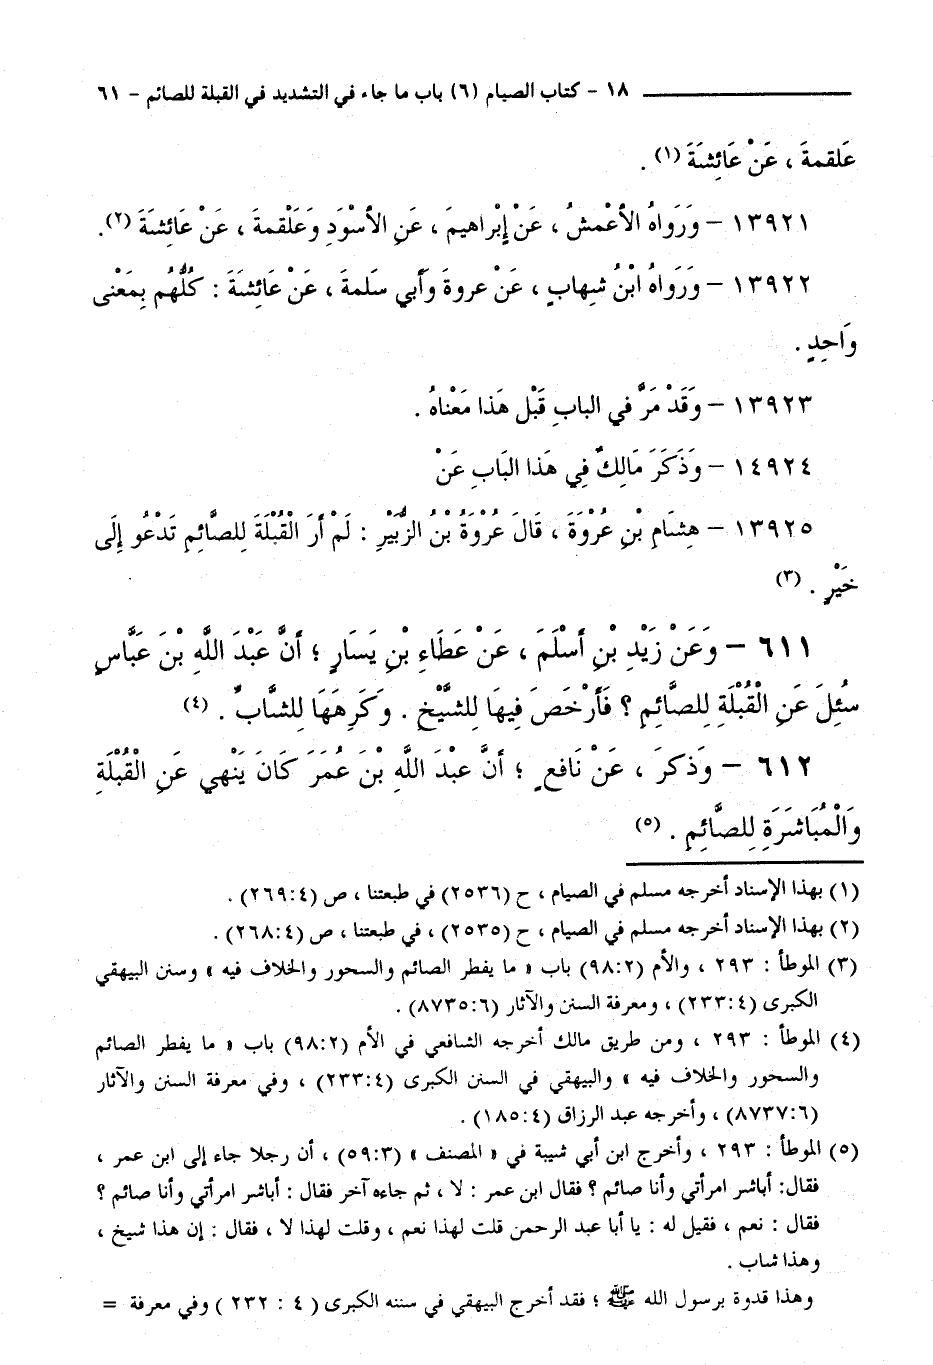 ١٨ - كتاب الصيام (٦) باب ما جاء في التشديد في القبلة للصائم - ٦١
عَلقمةَ ، عَنْ عَائِشَةَ (١) .
١٣٩٢١ – وَرَوَاهُ الأعْمشُ ، عَنْ إِبْراهيمَ ، عَنِ الأسْوَدِ وَعَلْقمةَ ، عَنْ عَائِشَةَ (٢).
١٣٩٢٢ – وَرَوَاهُ ابْنُ شِهابٍ ، عَنْ عروةَ وَأَبي سَلمةَ ، عَنْ عَائِشَةَ : كُلُّهُم بِمَعْنى
وَاحِدٍ .
١٣٩٢٣ – وَقَدْ مَرَّ في البابِ قَبْل هَذا مَعْناهُ .
١٤٩٢٤ – وَذَكَرَ مَالِكٌ فِي هَذا البَابِ عَنْ
١٣٩٢٥ – هِشَامِ بْنِ عُرْوَةَ ، قَالَ عُرْوَةُ بْنُ الزُّبَيْرِ : لَمْ أَرَ الْقُبْلَةَ لِلصَّائِمِ تَدْعُو إِلَى
خَيْرٍ . (٣)
٦١١ – وَعَنْ زَيْدِ بْنِ أَسْلَمَ ، عَنْ عَطَاءِ بْنِ يَسَارٍ ؛ أَنَّ عَبْدَ اللَّهِ بْنَ عَبَّاسٍ
سُئِلَ عَنِ الْقُبْلَةِ لِلصَّائِمِ ؟ فَأَرْخَصَ فِيهَا لِلشَّيْخِ . وَكَرِهَهَا لِلشَّابِّ . (٤)
٦١٢ – وَذكرَ ، عَنْ نَافعٍ ؛ أَنَّ عبْدَ اللَّهِ بْنَ عُمَرَ كَانَ يَنْهي عَنِ الْقُبْلَةِ
وَالْمُبَاشَرَةِ لِلصَّائِمِ . (٥)
(١) بهذا الإسناد أخرجه مسلم في الصيام ، ح (٢٥٣٦) في طبعتنا ، ص (٤:٢٦٩) .
(٢) بهذا الإسناد أخرجه مسلم في الصيام ، ح (٢٥٣٥) ، في طبعتنا ، ص (٤:٢٦٨) .
(٣) الموطأ : ٢٩٣ ، والأم (٢:٩٨) باب « ما يفطر الصائم والسحور والخلاف فيه » وسنن البيهقي
الكبرى (٤:٢٣٣) ، ومعرفة السنن والآثار (٦:٨٧٣٥) .
(٤) الموطأ : ٢٩٣ ، ومن طريق مالك أخرجه الشافعي في الأم (٢:٩٨) باب « ما يفطر الصائم
والسحور والخلاف فيه » والبيهقي في السنن الكبرى (٤:٢٣٣) ، وفي معرفة السنن والآثار
(٦:٨٧٣٧) ، وأخرجه عبد الرزاق (٤:١٨٥) .
(٥) الموطأ : ٢٩٣ ، وأخرج ابن أبي شيبة في « المصنف » (٣:٥٩) ، أن رجلا جاء إلى ابن عمر ،
فقال: أباشر امرأتي وأنا صائم ؟ فقال ابن عمر : لا ، ثم جاءه آخر فقال : أباشر امرأتي وأنا صائم ؟
فقال : نعم ، فقيل له : يا أبا عبد الرحمن قلت لهذا نعم ، وقلت لهذا لا ، فقال : إن هذا شيخ ،
وهذا شاب .
وهذا قدوة برسول الله ﷺ ؛ فقد أخرج البيهقي في سننه الكبرى ( ٤ : ٢٣٢ ) وفي معرفة =